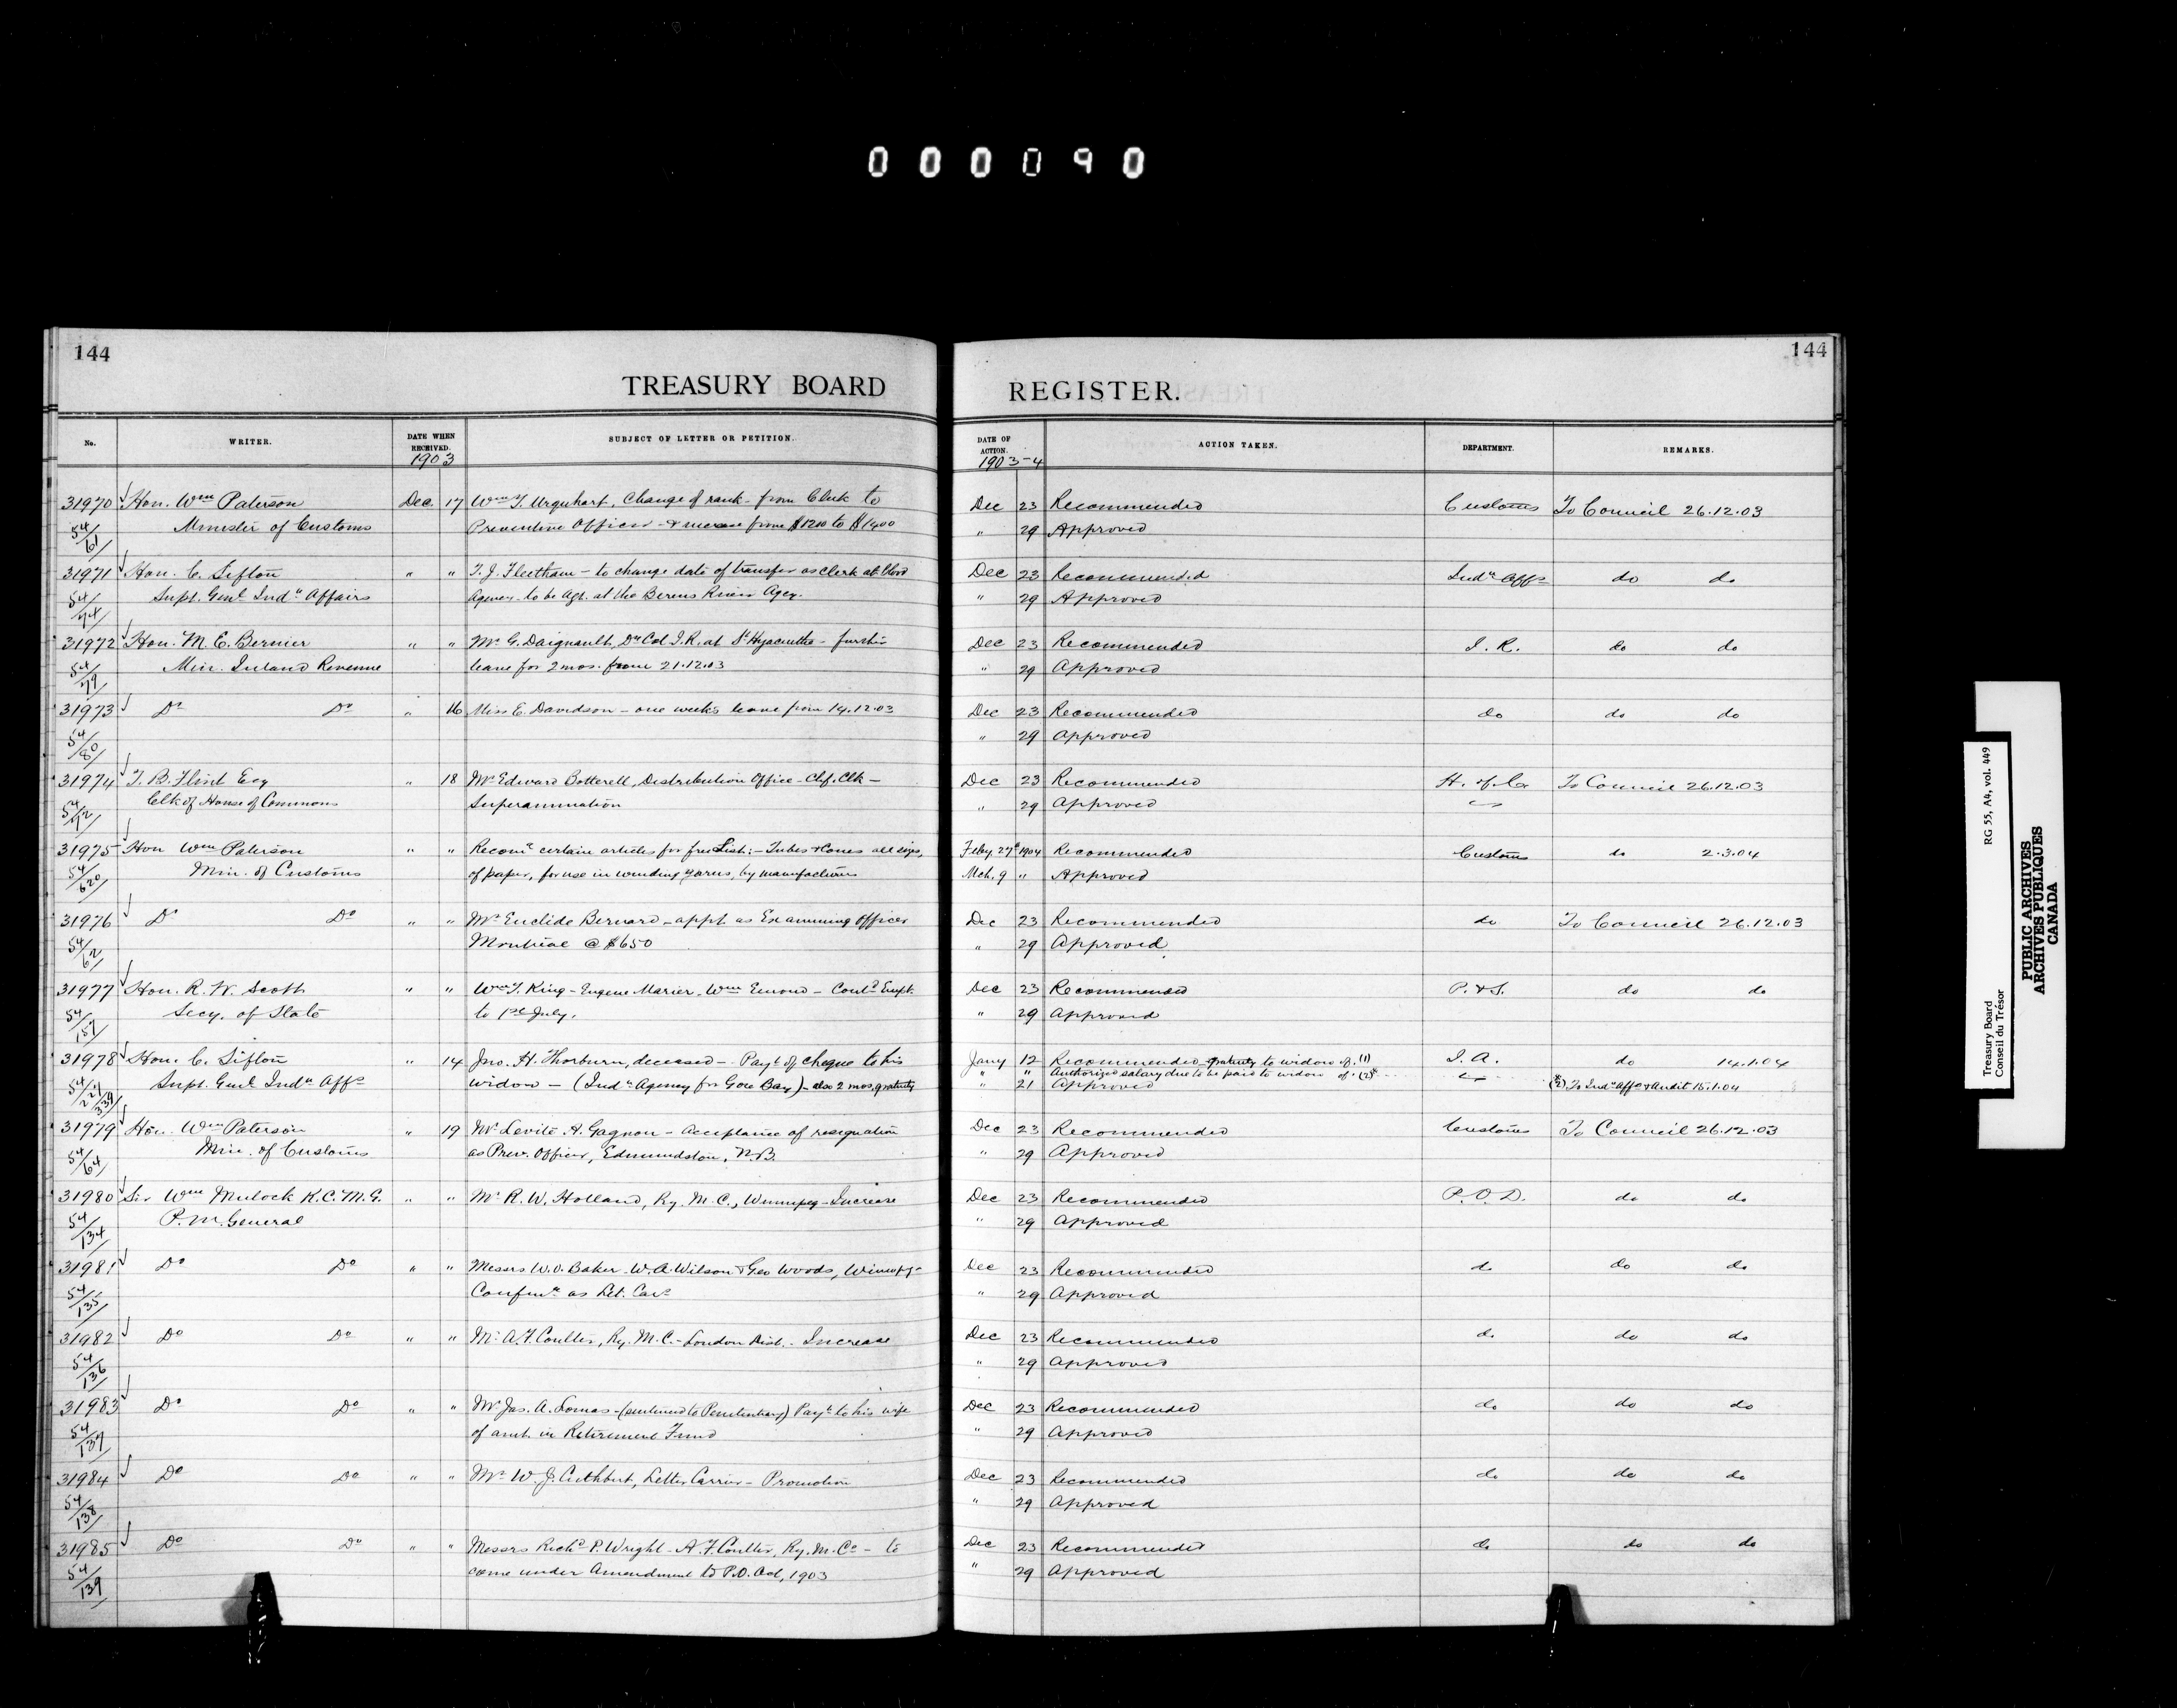 000090
144
TREASURY BOARD
No. WRITER. DATE WHEN RECEIVED. SUBJECT OF LETTER OR PETITION.
1903
31970 Hon. Wm Paterson Dec. 17 Wm T. Urquhart, Change of rank - from Clerk to
54/61 Minister of Customs Preventive Officer - & increase from $1200 to $1400
31971 Hon. C. Sifton " " T. J. Fleetham - to change date of transfer as clerk at Blood
54/74 Supt. Genl Indn Affairs Agency - to be Agt. at the Berens River Agcy.
31972 Hon. M. E. Bernier " " Mr G. Daignault, Dy Col I.R. at St Hyacinthe - further
54/79 Min. Inland Revenue leave for 2 mos. from 21.12.03
31973 Do Do " 16 Miss E. Davidson - one weeks leave from 19.12.03
54/80
31974 T. B. Flint Esq " 18 Mr Edward Botterell, Distribution Office - Chf. Clk -
54/12 Clk of House of Commons Superannuation
31975 Hon Wm Paterson " " Recomg certain articles for free List: - Tubes & Cones all sizes,
54/620 Min. of Customs of paper, for use in winding yarns, by manufacturers
31976 Do Do " " Mr Euclide Bernard - appt. as Examining Officer
54/62 Montreal @ $650
31977 Hon. R. W. Scott " " Wm T. King - Eugene Marier - Wm Emond - Contd Empt.
54/157 Secy. of State to 1st July.
31978 Hon. C. Sifton " 14 Jno. H. Thorburn, deceased - Payt of cheque to his
54/221/339 Supt. Genl Indn Affs widow - (Indn Agency for Gore Bay) - also 2 mos. gratuity
31979 Hon. Wm Paterson " 19 Mr Levite A. Gagnon - Acceptance of resignation
54/64 Min. of Customs as Prev. Officer, Edmundston, N.B.
31980 Sir Wm Mulock K.C.M.G. " " Mr R. W. Holland, Ry. M. C., Winnipeg - Increase
54/134 P. M. General
31981 Do Do " " Messrs W. O. Baker - W. A. Wilson & Geo Woods, Winnipeg -
54/135 Confirmn as Let. Cars
31982 Do Do " " Mr A. F. Coulter, Ry. M. C. - London Dist. - Increase
54/136
31983 Do Do " " Mr Jas. A. Lomas - (sentenced to Penitentiary) Payt to his wife
54/137 of amt. in Retirement Fund
31984 Do Do " " Mr W. J. Cuthbert, Letter Carrier - Promotion
54/138
31985 Do Do " " Messrs Richd P. Wright - A. F. Coulter, Ry. M. Cs - to
54/139 come under Amendment to P.O. Act, 1903
144
REGISTER.
DATE OF ACTION. ACTION TAKEN. DEPARTMENT. REMARKS.
1903-4
Dec 23 Recommended Customs To Council 26.12.03
" 29 Approved
Dec 23 Recommended Indn Affs do do
" 29 Approved
Dec 23 Recommended I. R. do do
" 29 Approved
Dec 23 Recommended do do do
" 29 Approved
Dec 23 Recommended H. of C. To Council 26.12.03
" 29 Approved
Feby. 27th 1904 Recommended Customs do 2.3.04
Mch. 9 " Approved
Dec 23 Recommended do To Council 26.12.03
" 29 Approved.
Dec 23 Recommended P. & S. do do
" 29 Approved
Jany 12 Recommended - gratuity to widow of. (1) I. A. do 14.1.04
" " Authorized salary due to be paid to widow of. (2)*
" 21 Approved (*2) To Indn Affs & Audit 15.1.04
Dec 23 Recommended Customs To Council 26.12.03
" 29 Approved
Dec 23 Recommended P.O.D. do do
" 29 Approved
Dec 23 Recommended do do do
" 29 Approved
Dec 23 Recommended do do do
" 29 Approved
Dec 23 Recommended do do do
" 29 Approved
Dec 23 Recommended do do do
" 29 Approved
Dec 23 Recommended do do do
" 29 Approved
Treasury Board RG 55, A4, vol. 449
Conseil du Trésor
PUBLIC ARCHIVES
ARCHIVES PUBLIQUES
CANADA